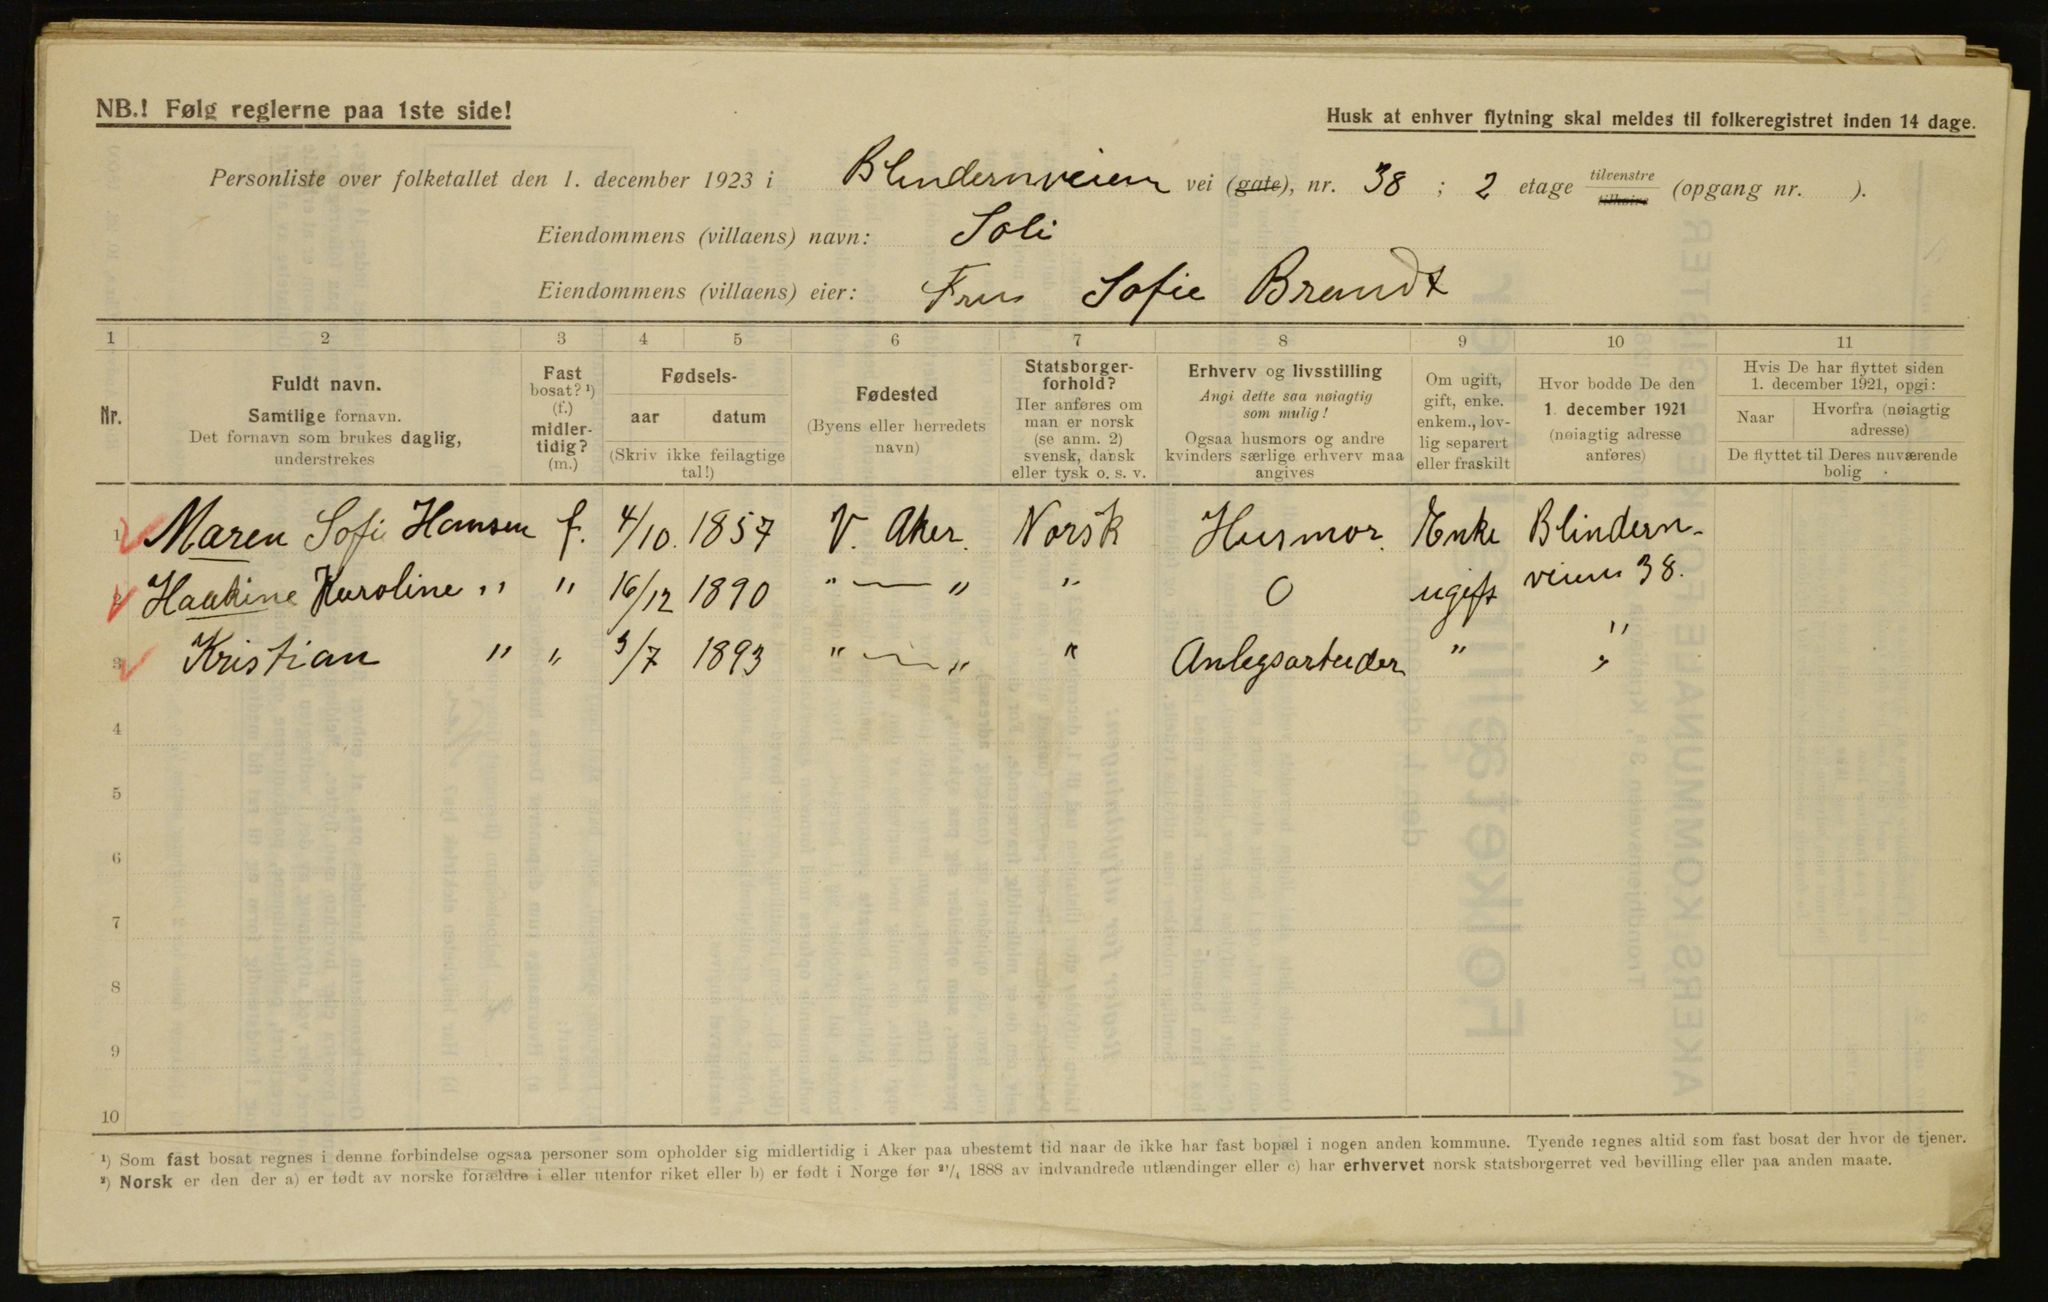 NB.! Følg reglerne paa 1ste side!
Husk at enhver flytning skal meldes til folkeregistret inden 14 dage.
Personliste over folketallet den 1. december 1923 i Blindernveien vei (gate), nr. 38 ; 2 etage tilvenstre tilhøire (opgang nr. ).
Eiendommens (villaens) navn: Soli
Eiendommens (villaens) eier: Fru Sofie Brandt
1 2 3 4 5 6 7 8 9 10 11
Nr.
Fuldt navn.
Samtlige fornavn.
Det fornavn som brukes daglig,
understrekes
Fast
bosat? ¹)
(f.)
midler-
tidig?
(m.)
Fødsels-
aar datum
(Skriv ikke feilagtige
tal!)
Fødested
(Byens eller herredets
navn)
Statsborger-
forhold?
Her anføres om
man er norsk
(se anm. 2)
svensk, dansk
eller tysk o. s. v.
Erhverv og livsstilling
Angi dette saa nøiagtig
som mulig!
Ogsaa husmors og andre
kvinders særlige erhverv maa
angives
Om ugift,
gift, enke.
enkem., lov-
lig separert
eller fraskilt
Hvor bodde De den
1. december 1921
(nøiagtig adresse
anføres)
Hvis De har flyttet siden
1. december 1921, opgi:
Naar
Hvorfra (nøiagtig
adresse)
De flyttet til Deres nuværende
bolig
1 Maren Sofie Hansen f. 4/10. 1857 V. Aker. Norsk Husmor. Enke Blindern-
2 Haakine Karoline " " 16/12 1890 " — " " 0 ugift veien 38.
"
3 Kristian " " 3/7 1893 " — " " Anlegsarbeider " "
4
5
6
7
8
9
10
¹) Som fast bosat regnes i denne forbindelse ogsaa personer som opholder sig midlertidig i Aker paa ubestemt tid naar de ikke har fast bopæl i nogen anden kommune. Tyende regnes altid som fast bosat der hvor de tjener.
²) Norsk er den der a) er født av norske forældre i eller utenfor riket eller b) er født i Norge før ²¹/₄ 1888 av indvandrede utlændinger eller c) har erhvervet norsk statsborgerret ved bevilling eller paa anden maate.